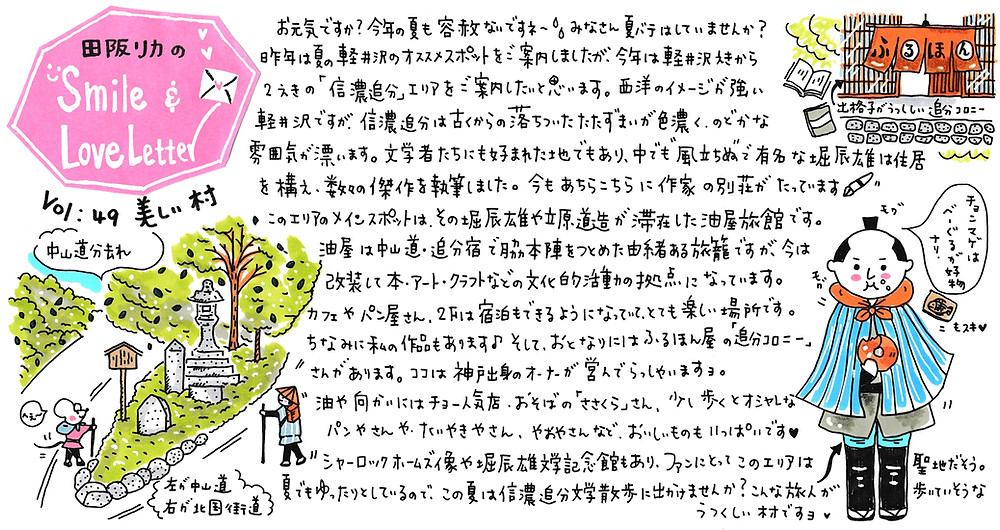 田阪リカの
Smile &
Love Letter
Vol:49 美しい村
お元気ですか?今年の夏も容赦ないですネ〜 みなさん夏バテはしていませんか?
昨年は夏の軽井沢のオススメスポットをご案内しましたが、今年は軽井沢えきから
2えきの「信濃追分」エリアをご案内したいと思います。西洋のイメージが強い
軽井沢ですが、信濃追分は古くからの落ちついたたたずまいが色濃く、のどかな
雰囲気が漂います。文学者たちにも好まれた地でもあり、中でも"風立ちぬ"で有名な堀辰雄は住居
を構え、数々の傑作を執筆しました。今もあちらこちらに作家の別荘がたっています
・このエリアのメインスポットは、その堀辰雄や立原道造が滞在した油屋旅館です。
油屋は中山道・追分宿で脇本陣をつとめた由緒ある旅籠ですが、今は
改装して本・アート・クラフトなどの文化的活動の拠点になっています。
カフェやパン屋さん、2Fは宿泊もできるようになっていて、とても楽しい場所です。
ちなみに私の作品もあります♪ そして、おとなりにはふるほん屋の「追分コロニー」
さんがあります。ココは神戸出身のオーナーが営んでらっしゃいますョ。
油や向かいにはチョー人気店、おそばの「ささくら」さん、少し歩くとオシャレな
パンやさんや、たいやきやさん、やおやさんなど、おいしいものもいっぱいです♥
シャーロックホームズ像や堀辰雄文学記念館もあり、ファンにとってこのエリアは
聖地だそう。
夏でもゆったりとしているので、この夏は信濃追分文学散歩に出かけませんか?こんな旅人が
歩いていそうな
うつくしい村ですョ
ふるほん
出格子がうつくしい追分コロニー
モグ
モグ
チョンマゲは
べーぐるが好物
ナリ〜
こもスキ♥
中山道分去れ
へぇ〜
左が中山道
右が北国街道